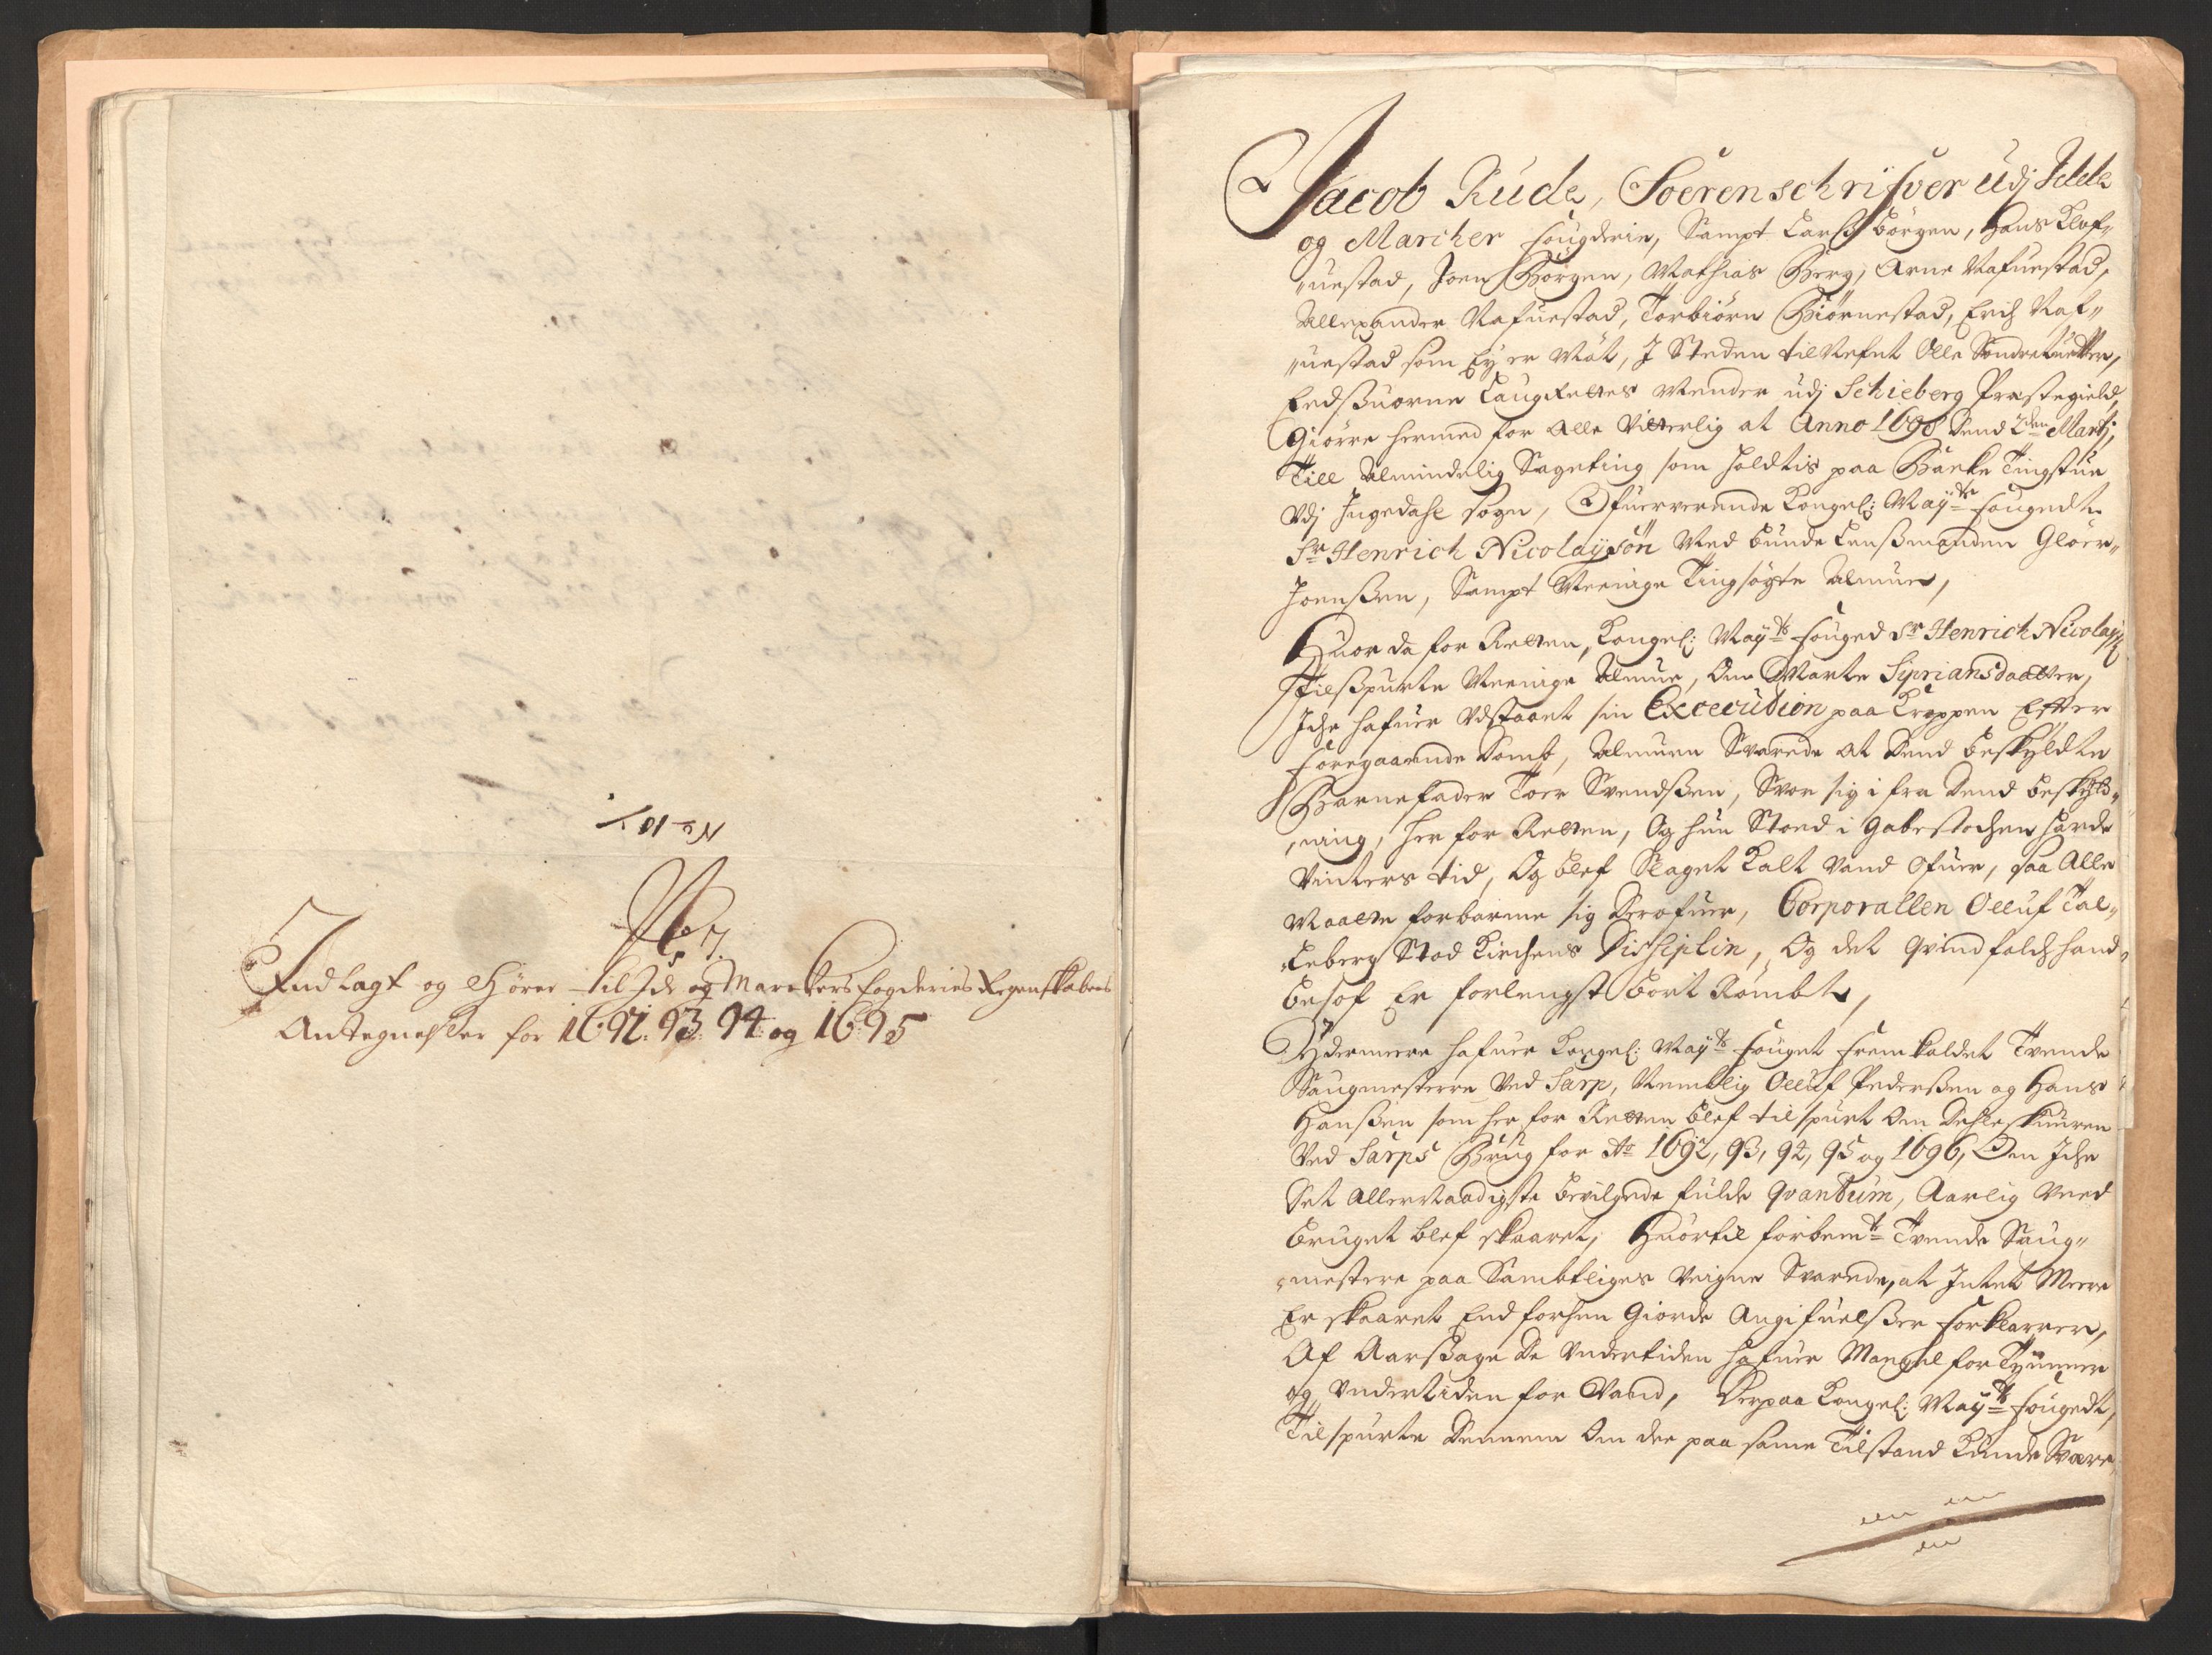 No 10
No 7.
Indlagt og Hører til Ide og Markers Fogderies Regenskabers
Antegnelser for 1692. 93. 94 og 1695
Jacob Rude, Soerenschrifver udj Idde
og Marcker fougderie, Sampt Lars Börgen, Hans Klof„
„uestad, Joen Börgen, Mathias Berg, Arne Nafuestad,
Allexander Nafuestad, Torbiörn Biörnestad, Erich Naf„
„uestad som Ey er Möt, J Steden til Nefnt Olle Söndretuetter,
Eedssuorne Laugrettes Mender udj Schieberg Præstegield,
Giörre hermed for Alle Vitterlig at Anno 1698 Dend 2den Martj,
Till Almindelig Sageting som holdtis paa Hanke Tingstue
Vdj Ingedahl Sogn, Ofuerverende Kongel: Mayts fougedt
Sr Henrich Nicolaysön Med bunde Lenssmanden Glöer„
Joenssen, Sampt Menige Tingsögte Almue,
Huor da for Retten, Kongel: Mayts fouged Sr Henrich Nicolays:
Tilspurte Menige Almue, Om Marte Siprians daatter,
Iche hafuer Vdstaaet sin Excecudion paa Kroppen Effter
foregaaende Domb, Almuen Svarede at Dend beskyldte
Barnefader Toer Svendssen, Svor sig i fra Dend beskyld„
„ning, her for Retten, Og hun Stoed i Gabestochen harde
Vinters tid, Og blef Slaget Kalt Vand Ofuer, saa Alle
Maatte forbarme sig Derofuer, Corporallen Olluf Tal„
„leberg Stod Kirchens Dissiplin, Og det qvindfolch hand
besof Er forlengst bort Römbt,
Ydermeere hafuer Kongel: Mayts fouget fremkaldet Tvende
Saugmesterre Ved Sarp, Nemblig Olluf Pederssen og Hans
Hanssen som her for Retten blef tilspurt Om Dehleskuuren
Ved Sarps Brug for Ao 1692, 93, 94, 95 og 1696, Om Iche
Det Allernaadigste bevilgede fulde qvantum, Aarlig Ved
bruget blef skaaret, Huortil forbemte Tvende Saug„
„mestere paa Sambtliges Veigne Svarede, at Intet Meere
Er skaaret End forhen Giorde Angifuelsser forklarrer,
Af Aarssage De Undertiden hafuer Mangel for Tymmer
og Undertiden for Vand, Derpaa Kongel: Mayts fougedt,
Tilspurte Dennem Om der paa samme Tilstand Kunde Svære